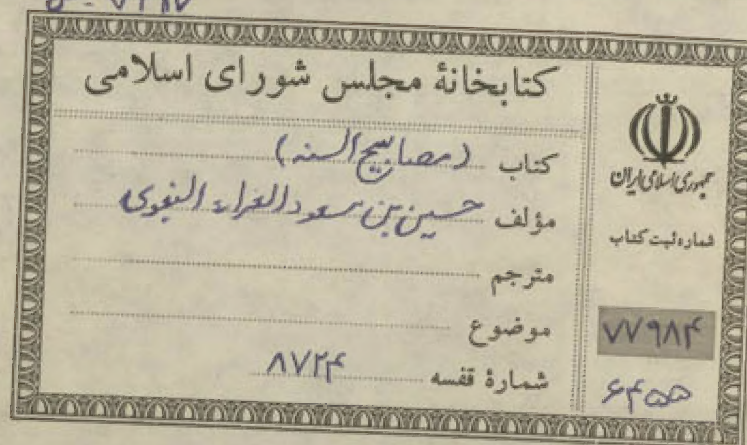 کتابخانهٔ مجلس شورای اسلامی
کتاب (مصابیح السنه)
مؤلف حسین بن مسعود الفراء البغوی
مترجم
موضوع
شمارهٔ قفسه ۸۷۲۴
جمهوری اسلامی ایران
شماره ثبت کتاب
۷۷۹۸۴
۶۴۵۵